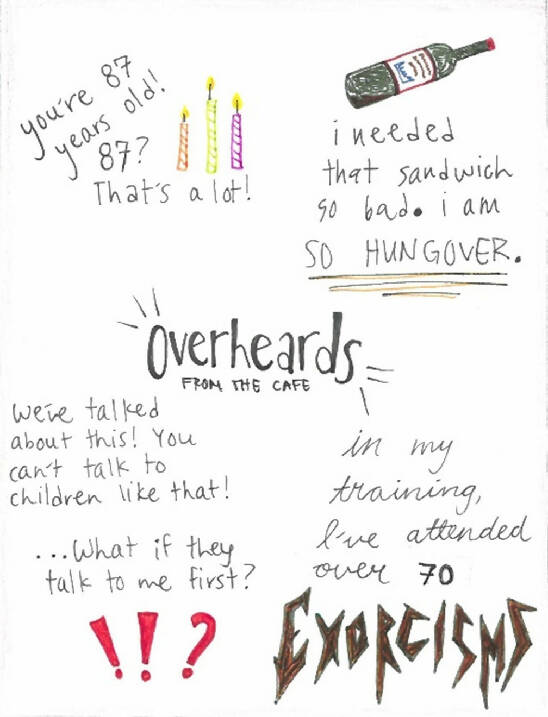 you're 87
years old!
87?
That's a lot!
i needed
that sandwich
so bad. i am
SO HUNGOVER.
Overheards
FROM THE CAFE
We've talked
about this! You
can't talk to
children like that!
...What if they
talk to me first?
!!?
in my
training,
I've attended
over 70
EXORCISMS